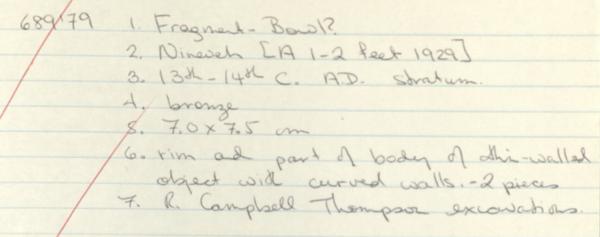 689'79 1. Fragment - Bowl?
2. Nineveh [A 1-2 feet 1929]
3. 13th - 14th C. A.D. stratum.
4. bronze
5. 7.0 x 7.5 cm
6. rim and part of body of thin-walled
object with curved walls. - 2 pieces
7. R. Campbell Thompson excavations.